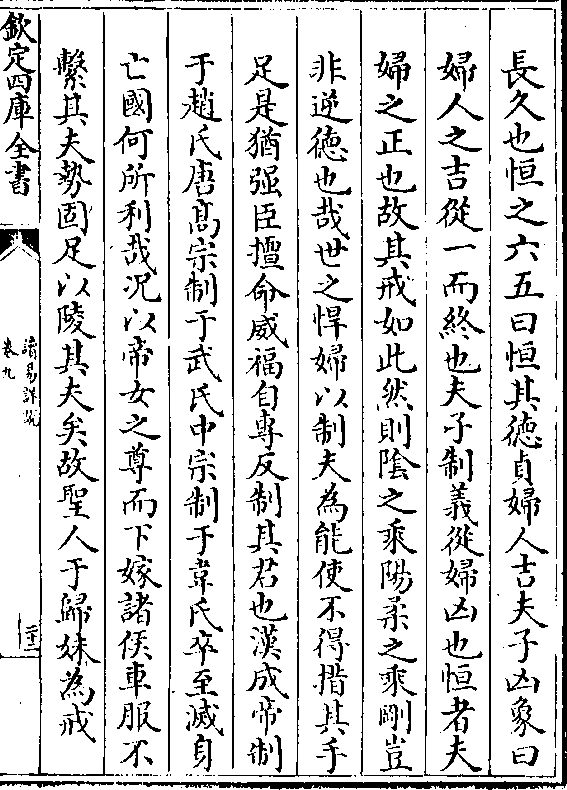 長久也恒之六五曰恒其徳貞婦人吉夫子凶象曰
婦人之吉從一而終也夫子制義從婦凶也恒者夫
婦之正也故其戒如此然則陰之乘陽柔之乘剛豈
非逆徳也哉世之悍婦以制夫為能使不得措其手
足是猶强臣擅命威福自專反制其君也漢成帝制
于趙氏唐髙宗制于武氏中宗制于韋氏卒至滅身
亡國何所利哉况以帝女之尊而下嫁諸侯車服不
繫其夫勢固足以陵其夫矣故聖人于歸妹為戒
欽定四庫全書
讀易詳說
卷九
二十二